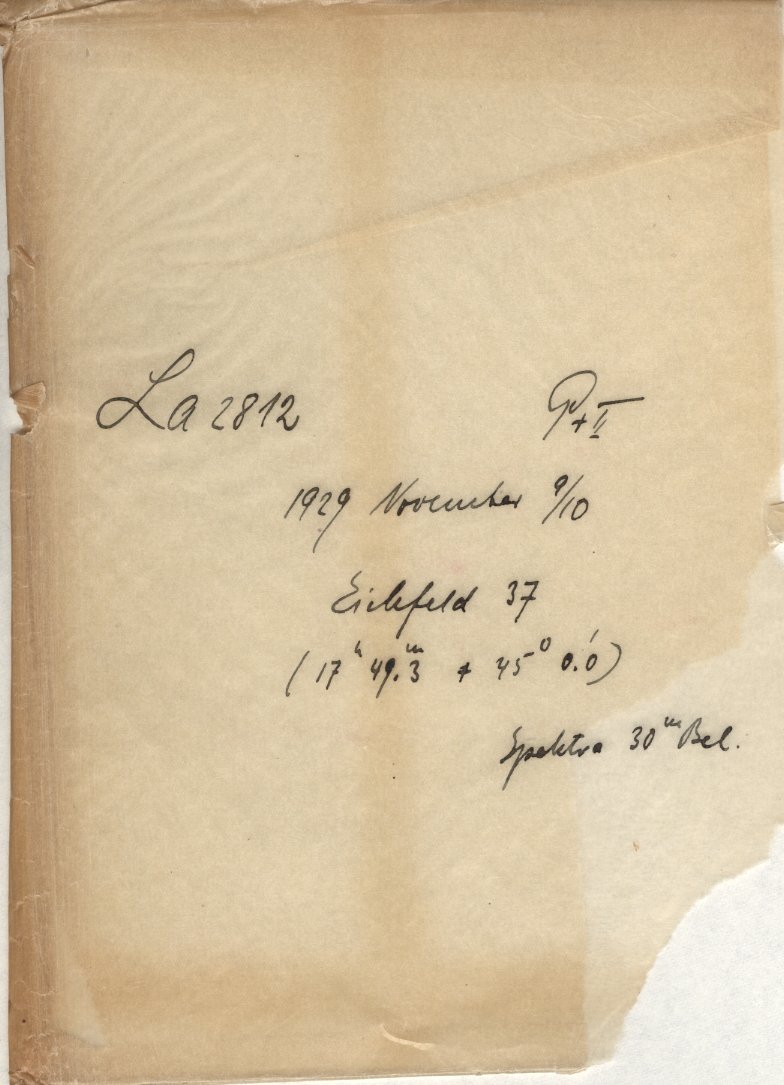 La 2812 P+II
1929 November 9/10
Eichfeld 37
(17ʰ 49.ᵐ3 + 45⁰ 0.́0)
Spektra 30ᵐ Bel.